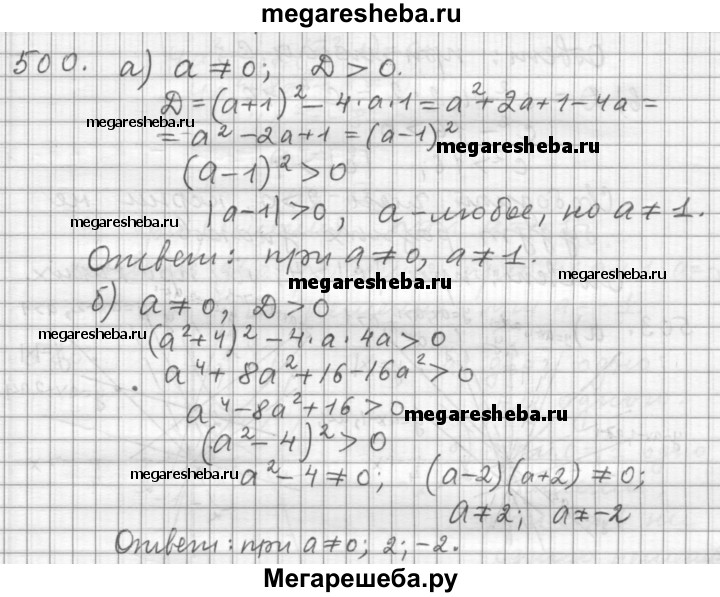 megaresheba.ru
500. а) a ≠ 0; Д > 0.
Д = (a+1)² − 4·a·1 = a² + 2a + 1 − 4a =
megaresheba.ru
= a² − 2a + 1 = (a−1)²
megaresheba.ru
(a−1)² > 0
megaresheba.ru
|a−1| > 0, a – любое, но a ≠ 1.
Ответ: при a ≠ 0, a ≠ 1.
megaresheba.ru
megaresheba.ru
б) a ≠ 0, Д > 0
megaresheba.ru
(a²+4)² − 4·a·4a > 0
a⁴ + 8a² + 16 − 16a² > 0
a⁴ − 8a² + 16 > 0
megaresheba.ru
(a² − 4)² > 0
megaresheba.ru
a² − 4 ≠ 0; (a−2)(a+2) ≠ 0;
a ≠ 2; a ≠ −2
Ответ: при a ≠ 0; 2; −2.
Мегарешеба.ру